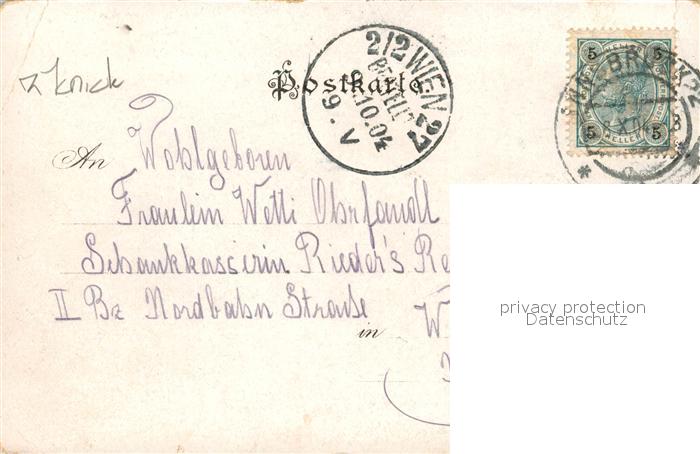 Postkarte
2/2 WIEN 27
BESTELLT
10.04
9.V
5 5
5 5
HELLER
z knick
An Wohlgeboren
Fräulein Wetti Obrfandl
Schankkasserin Rieder's Re
II Bz Nordbahn Straße
in W
privacy protection
Datenschutz